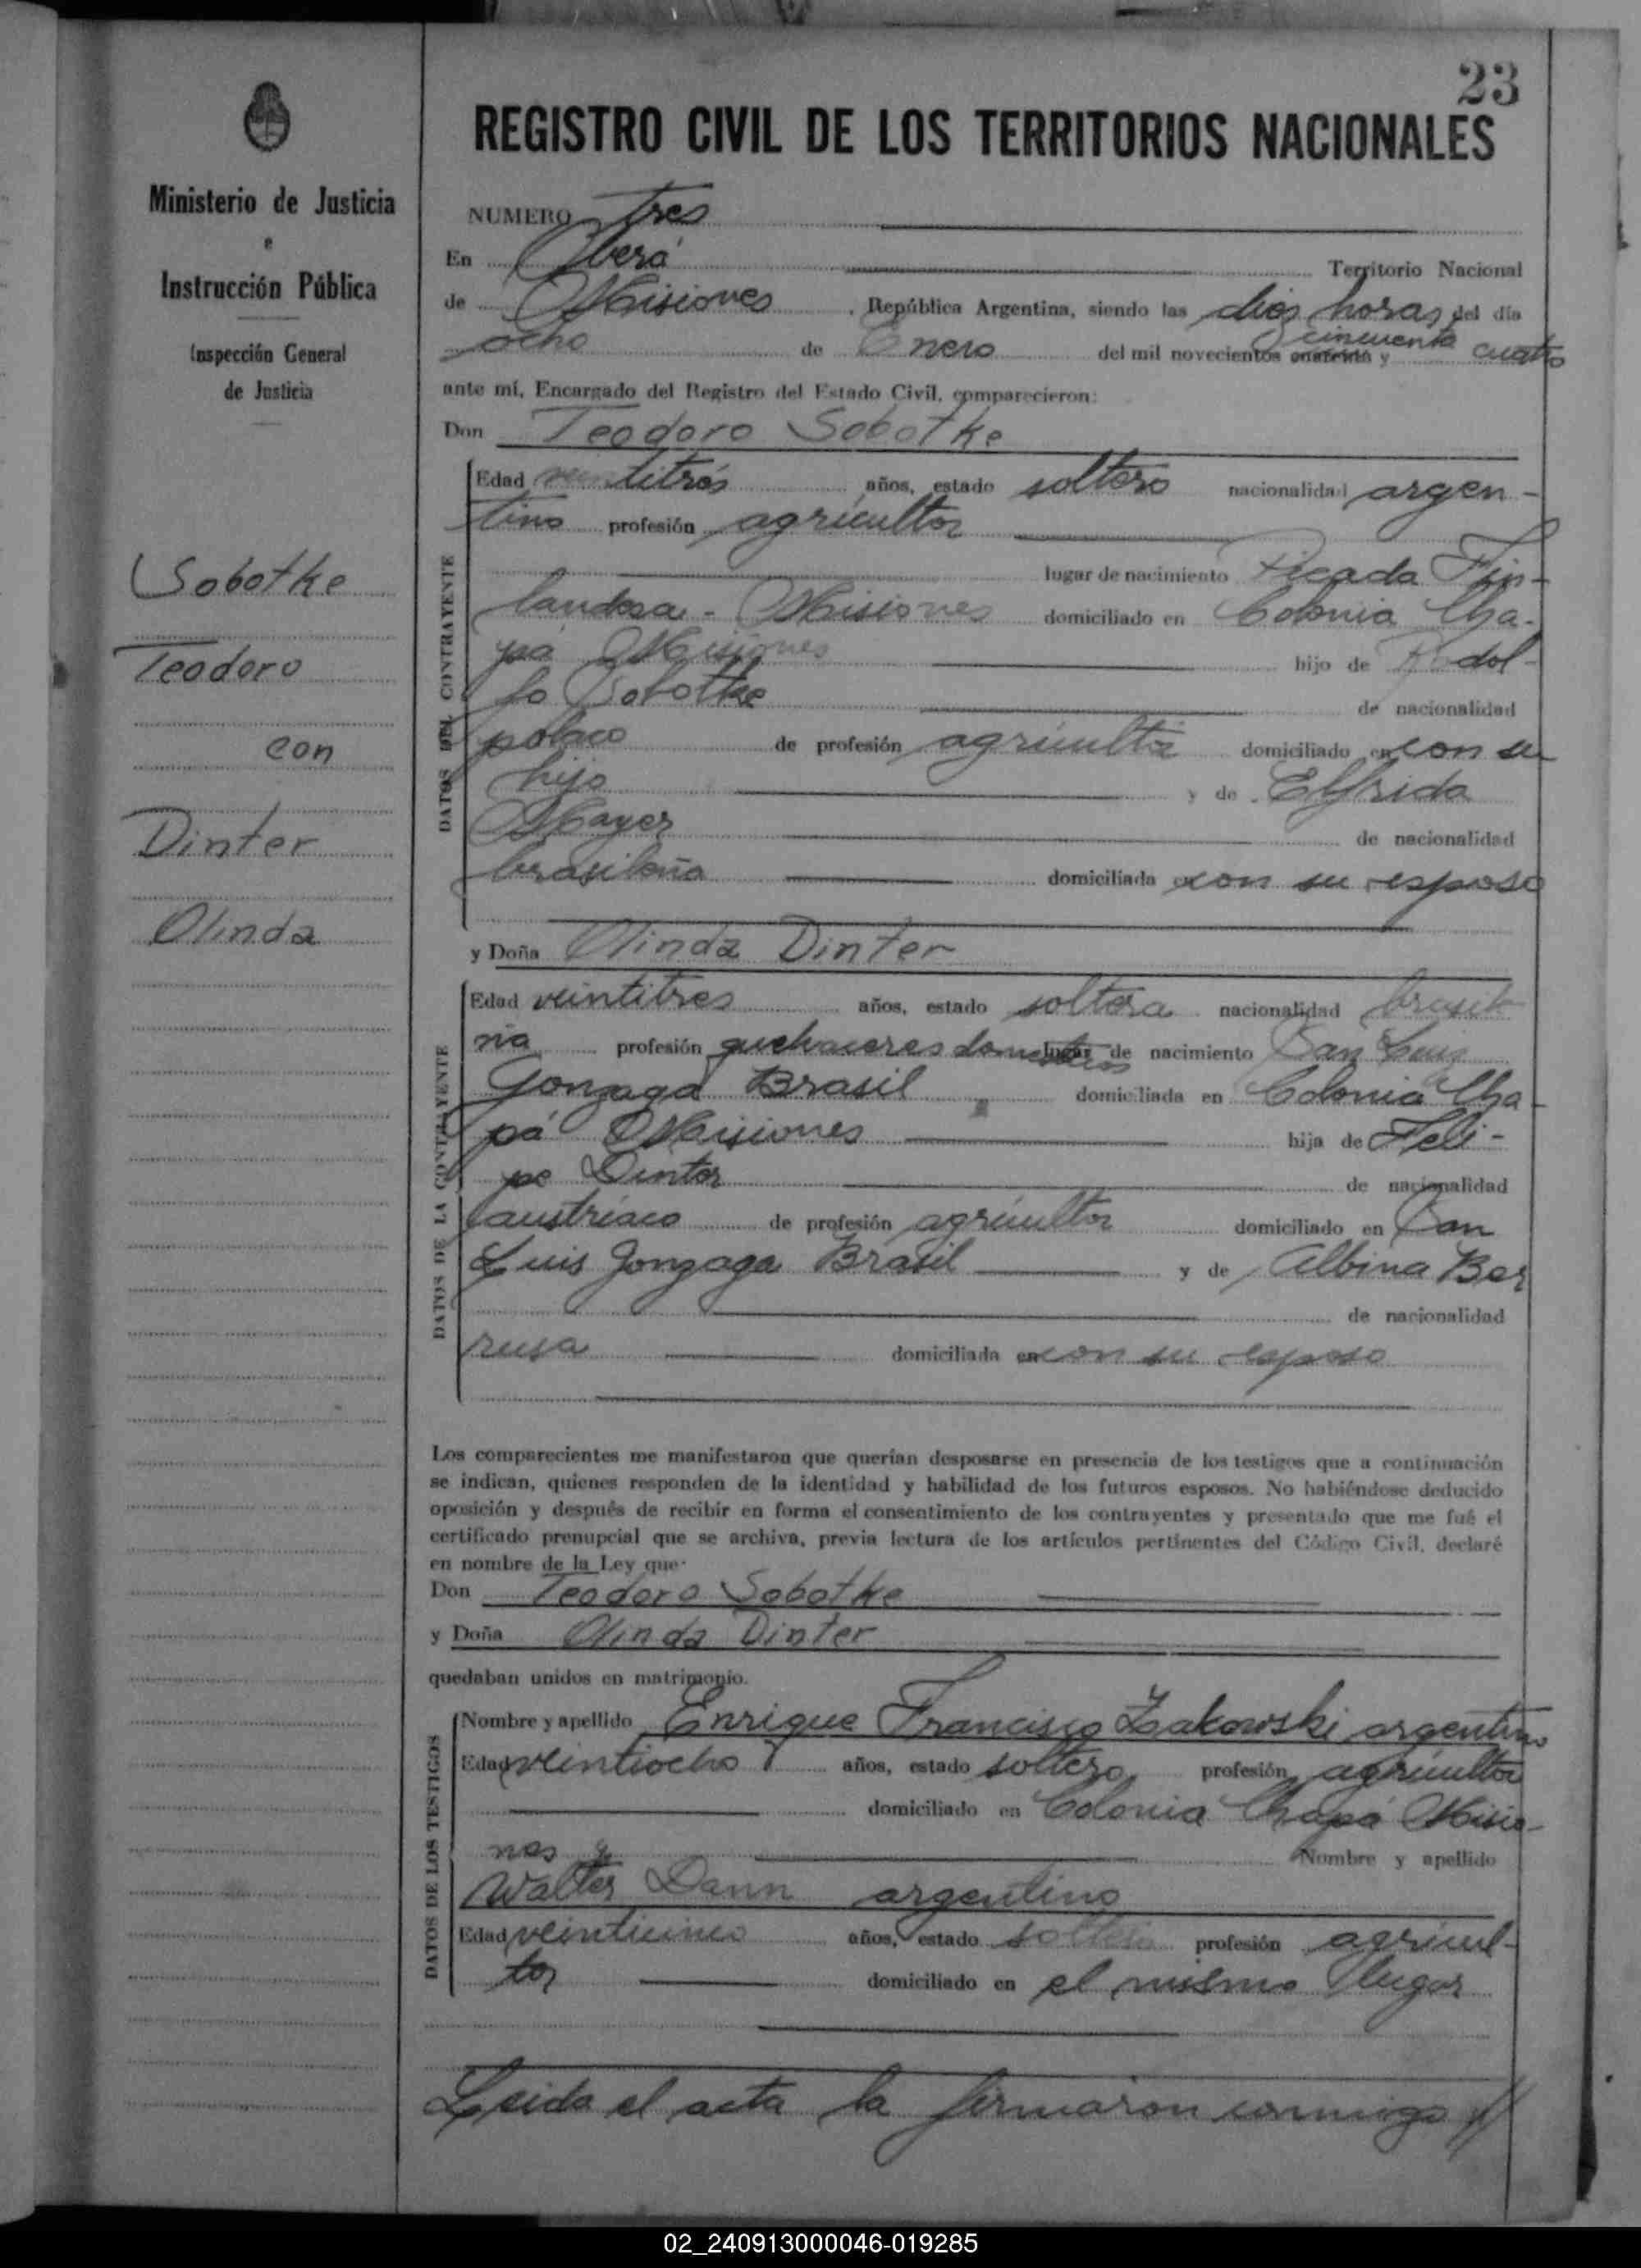 23
REGISTRO CIVIL DE LOS TERRITORIOS NACIONALES
Ministerio de Justicia
e
Instrucción Pública
Inspección General
de Justicia
Sobotke
Teodoro
con
Dinter
Olinda
NUMERO tres
En Oberá Territorio Nacional
de Misiones, República Argentina, siendo las diez horas del día
ocho de Enero del mil novecientos cuarenta y cincuenta cuatro
ante mí, Encargado del Registro del Estado Civil, comparecieron:
Don Teodoro Sobotke
DATOS DEL CONTRAYENTE
Edad veintitrés años, estado soltero nacionalidad argen-
tino profesión agricultor
lugar de nacimiento Picada Fin-
landesa - Misiones domiciliado en Colonia Cha-
pá Misiones hijo de Rodol-
fo Sobotke de nacionalidad
polaco de profesión agricultor domiciliado en con su
hijo y de Elfrida
Mayer de nacionalidad
brasileña domiciliada en con su esposo
y Doña Olinda Dinter
DATOS DE LA CONTRAYENTE
Edad veintitres años, estado soltera nacionalidad brasile
ña profesión quehaceres domesticos lugar de nacimiento San Luis
Gonzaga Brasil domiciliada en Colonia Cha-
pá Misiones hija de Feli-
pe Dinter de nacionalidad
austriaco de profesión agricultor domiciliado en San
Luis Gonzaga Brasil y de Albina Ber
de nacionalidad
rusa domiciliada en con su esposo
Los comparecientes me manifestaron que querían desposarse en presencia de los testigos que a continuación
se indican, quienes responden de la identidad y habilidad de los futuros esposos. No habiéndose deducido
oposición y después de recibir en forma el consentimiento de los contrayentes y presentado que me fué el
certificado prenupcial que se archiva, previa lectura de los artículos pertinentes del Código Civil, declaré
en nombre de la Ley que:
Don Teodoro Sobotke
y Doña Olinda Dinter
quedaban unidos en matrimonio.
DATOS DE LOS TESTIGOS
Nombre y apellido Enrique Francisco Zakowski argentino
Edad veintiocho años, estado soltero profesión agricultor
domiciliado en Colonia Chapá Misio-
nes y Nombre y apellido
Walter Dann argentino
Edad veinticinco años, estado soltero profesión agricul-
tor domiciliado en el mismo lugar
Leida el acta la firmaron conmigo //
02_240913000046-019285